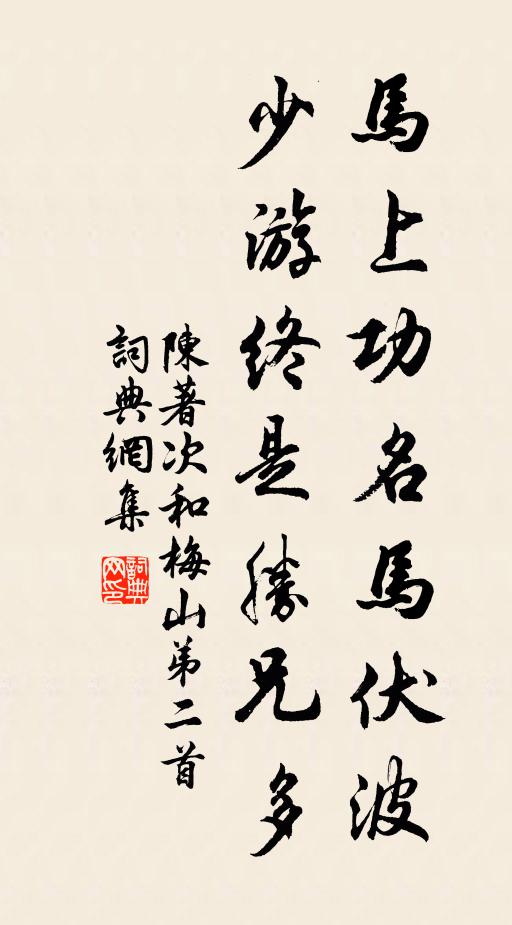 馬上功名馬伏波
少游終是勝兄多
陳著次和梅山弟二首
詞典網集
詞典
网印